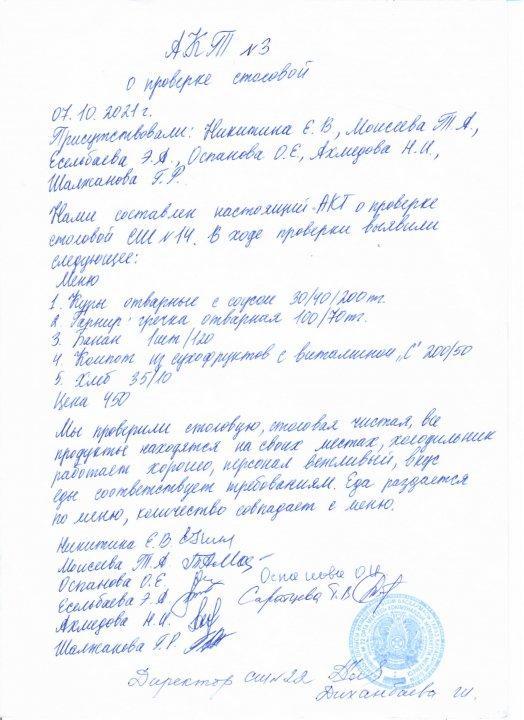 АКТ №3
о проверке столовой
07.10.2021г.
Присутствовали: Никитина Е.В., Моисеева Т.А.,
Есельбаева Э.А., Оспанова О.Е., Ахмедова Н.И.,
Шалжанова Г.Р.
Нами составлен настоящий АКТ о проверке
столовой СШ №14. В ходе проверки выявили
следующее:
Меню
1. Куры отварные с соусом 30/40/200тг.
2. Гарнир: гречка отварная 100/70тг.
3. Банан 1шт/120
4. Компот из сухофруктов с витамином „С" 200/50
5. Хлеб 35/10
Цена 450
Мы проверили столовую, столовая чистая, все
продукты находятся на своих местах, холодильник
работает хорошо, персонал вежливый, вкус
еды соответствует требованиям. Еда раздается
по меню, количество совпадает с меню.
Никитина Е.В.
Моисеева Т.А.
Оспанова О.Е. Оспанова О.И.
Есельбаева Э.А. Саратцева Т.В.
Ахмедова Н.И.
Шалжанова Г.Р.
Директор
Диханбаева Ш.